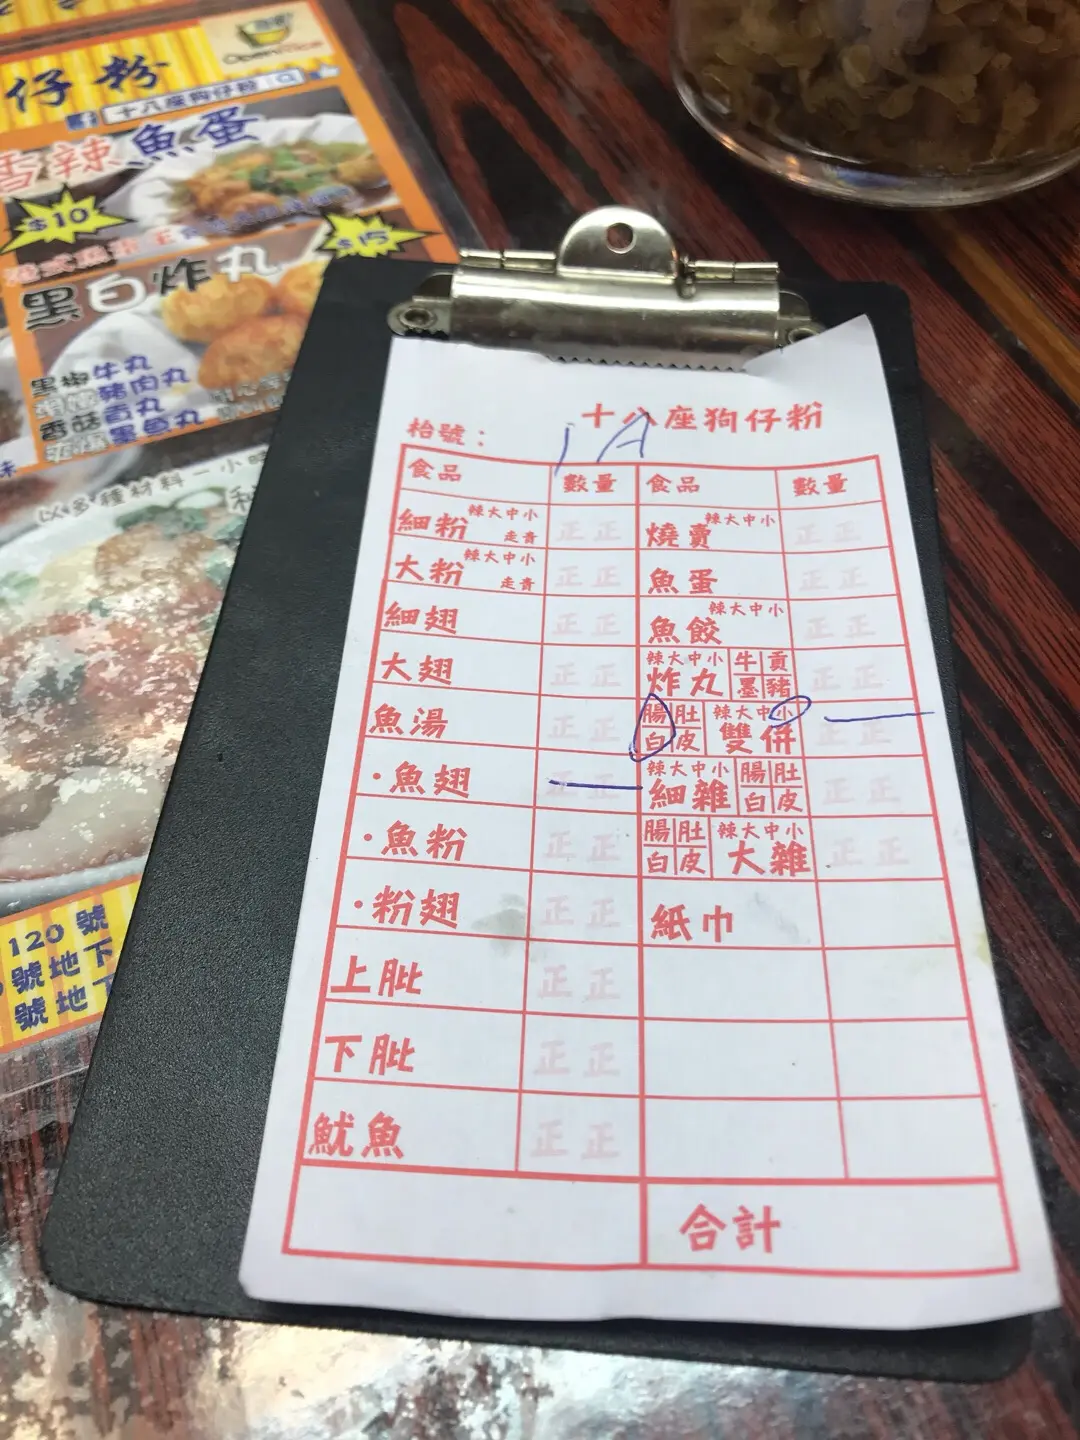 仔粉
OpenRice
十八座狗仔粉
香辣魚蛋
$10
$15
黑白炸丸
黑椒牛丸
豬肉丸
香菇貢丸
墨魚丸
味
以多種材料一小時
120號
號地下
號地下
十八座狗仔粉
枱號：
1A
食品 數量 食品 數量
細粉 辣大中小 走青 正正 燒賣 辣大中小 正正
大粉 辣大中小 走青 正正 魚蛋 正正
細翅 正正 魚餃 辣大中小 正正
大翅 正正 辣大中小 炸丸 牛貢墨豬 正正
魚湯 正正 腸肚白皮 辣大中小 雙併 正正
·魚翅 正正 辣大中小 細雜 腸肚白皮 正正
·魚粉 正正 腸肚白皮 辣大中小 大雜 正正
·粉翅 正正 紙巾
上肶 正正
下肶 正正
魷魚 正正
合計